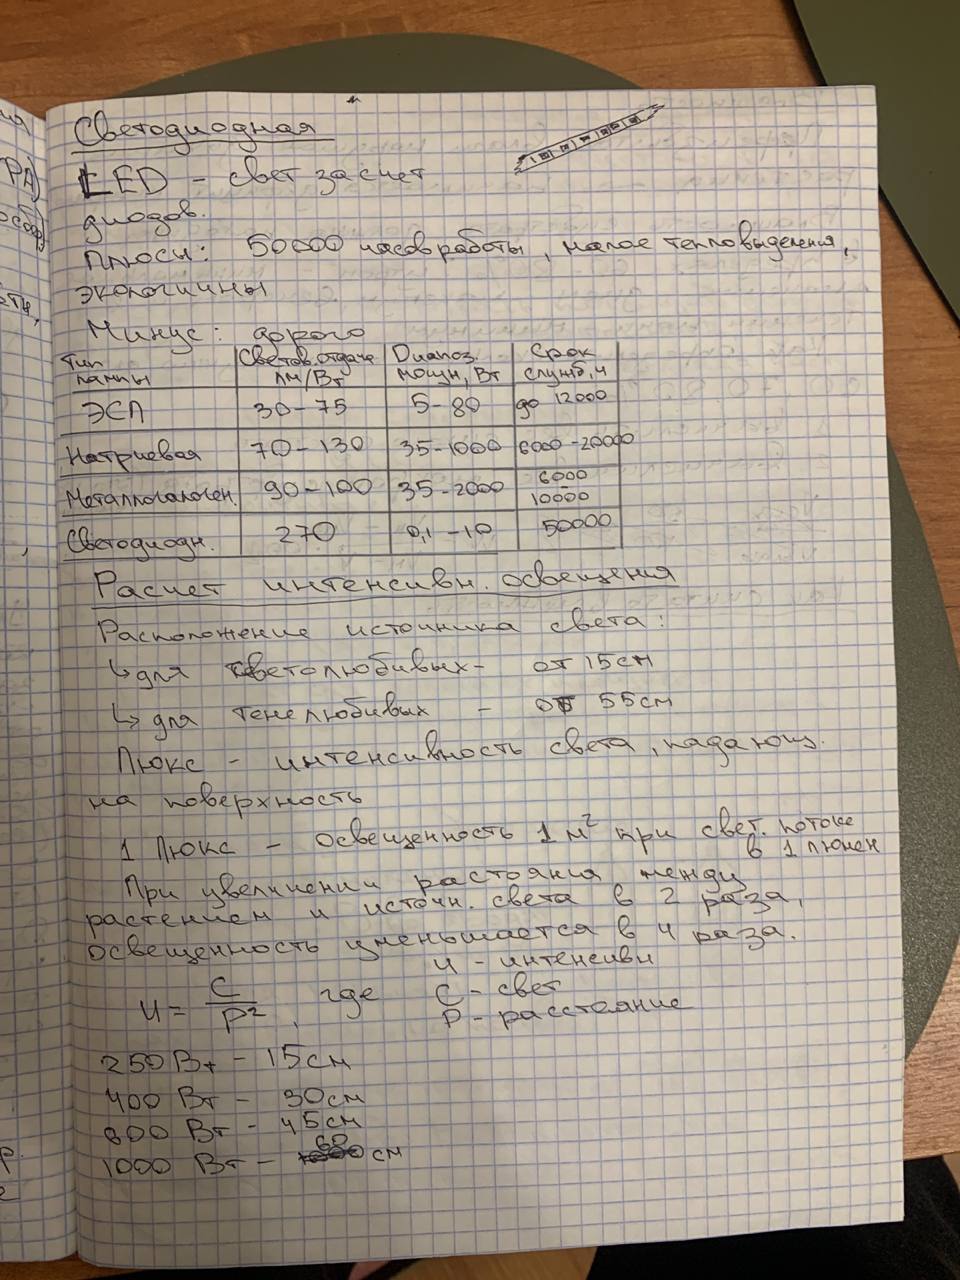 Светодиодная
LED – свет за счет
диодов.
Плюсы: 50000 часов работы, малое тепловыделения,
экологичны
Минус: дорого
Тип лампы | Светов. отдача лм/Вт | Диапоз. мощн, Вт | Срок служб, ч
ЭСЛ | 30–75 | 5–80 | до 12000
Натриевая | 70–130 | 35–1000 | 6000–20000
Металлогалоген. | 90–100 | 35–2000 | 6000 10000
Светодиодн. | 270 | 0,1–10 | 50000
Расчет интенсивн. освещения
Расположение источника света:
↳ для светолюбивых – от 15см
↳ для тенелюбивых – от 55см
Люкс – интенсивность света, падающ.
на поверхность
1 Люкс – освещенность 1 м² при свет. потоке
в 1 люмен
При увеличении растояния между
растением и источн. света в 2 раза,
освещенность уменьшается в 4 раза.
И = С/Р², где
И – интенсивн
С – свет
Р – расстояние
250 Вт – 15см
400 Вт – 30см
800 Вт – 45см
1000 Вт – 60 см